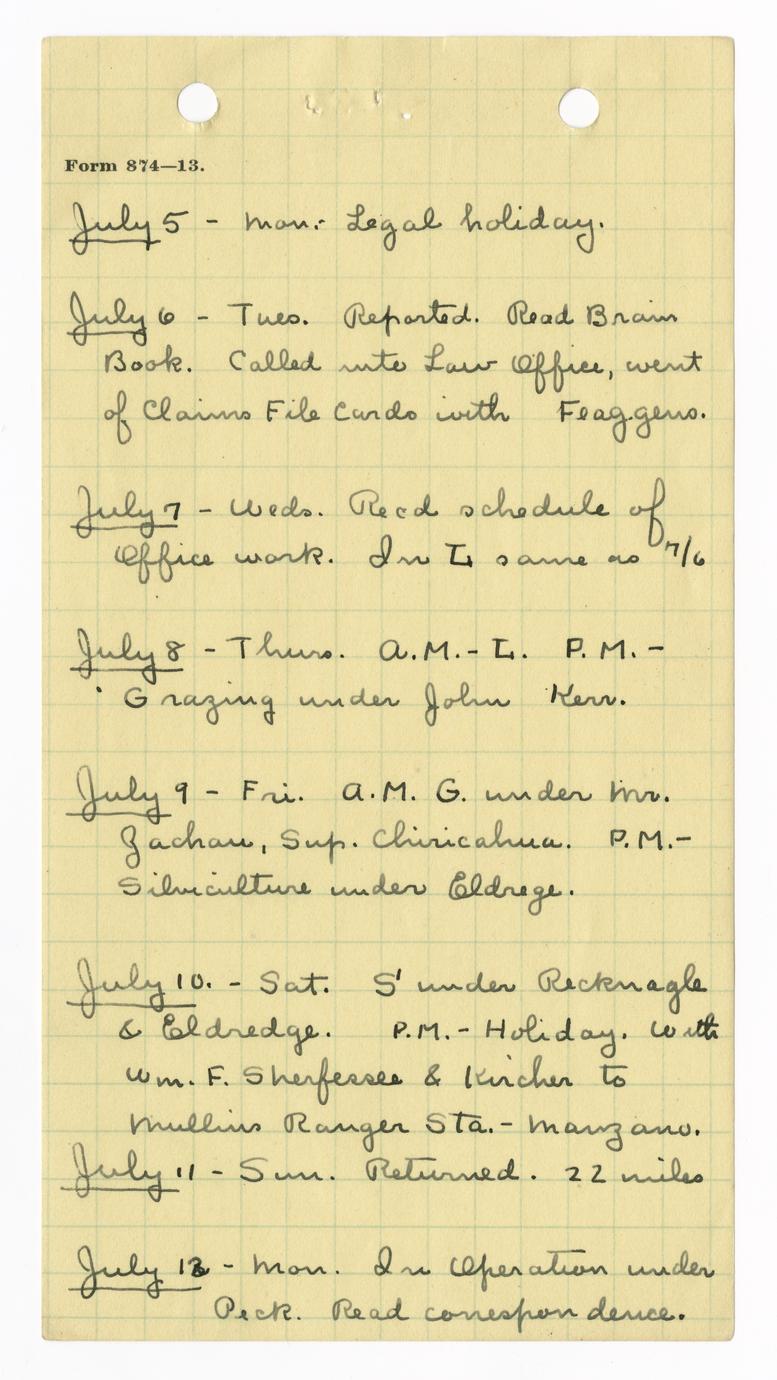 Form 874—13.
July 5 - Mon:- Legal holiday.
July 6 - Tues. Reported. Read Brain
Book. Called into Law Office, went
of Claims File Cards with Feaggens.
July 7 - Weds. Recd schedule of
Office work. In L same as 7/6
July 8 - Thurs. A.M.- L. P.M.-
Grazing under John Kerr.
July 9 - Fri. A.M. G. under Mr.
Zachau, Sup. Chiricahua. P.M.-
Silviculture under Eldrege.
July 10. - Sat. S' under Recknagle
& Eldredge. P.M.- Holiday. With
Wm. F. Sherfesee & Kircher to
Mullins Ranger Sta.- Manzano.
July 11 - Sun. Returned. 22 miles
July 12 - Mon. In Operation under
Peck. Read correspondence.